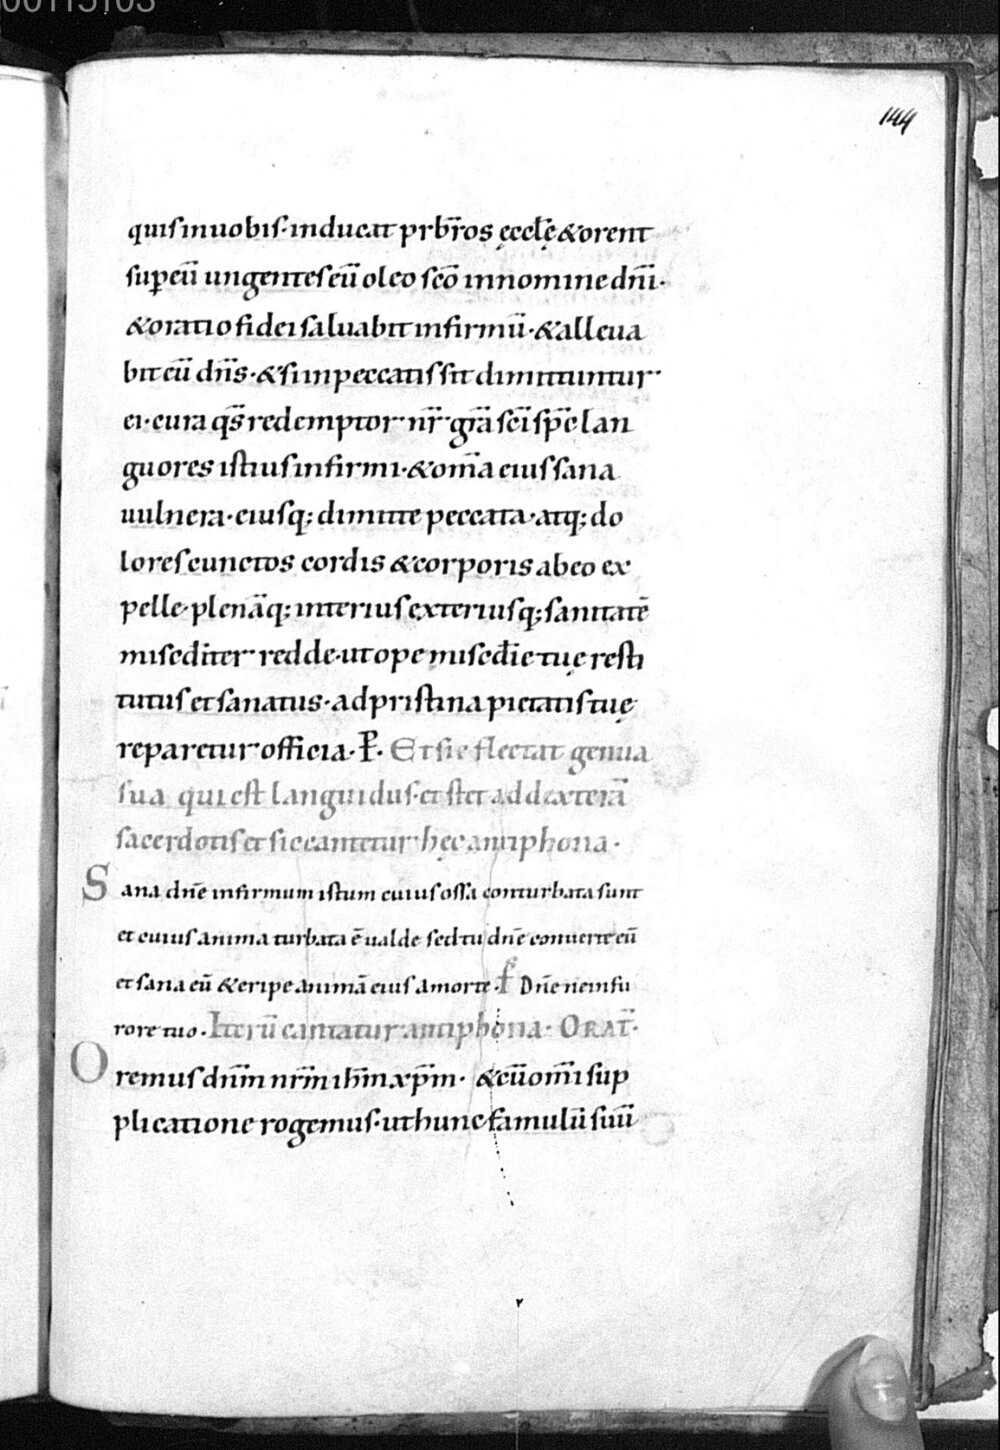 00115103
144
quis in uobis· inducat prb̅ros ęccl̅ę & orent
sup eū ungentes eū oleo sc̅o in nomine dn̅i·
& oratio fidei saluabit infirmū· & alleua
bit eū dn̅s· & si in peccatis sit dimittuntur
ei· cura qs̅ redemptor nr̅ gr̅a sc̅i sp̅c lan
guores istius infirmi· & om̅a eius sana
uulnera· eiusq; dimitte peccata· atq; do
lores cunctos cordis & corporis ab eo ex
pelle· plenāq; interius exteriusq; sanitatē
misedit̅er redde· ut ope misedīe tuę resti
tutus et sanatus· ad pristina pietatis tuę
reparetur officia· P̅· Et sic flectat genua
sua qui est languidus· et stet ad dexterā
sacerdotis et sic cantetur hęc antiphona·
Sana dn̅e infirmum istum cuius ossa conturbata sunt
et cuius anima turbata ē ualde sed tu dn̅e conuerte eū
et sana eū & eripe animā eius a morte· P̅s Dn̅e ne in fu
rore tuo· Iterū cantatur antiphona· ORAT̅·
Oremus dn̅m nr̅m ih̅m xp̅m· & cū om̅i sup
plicatione rogemus· ut hunc famulū suū